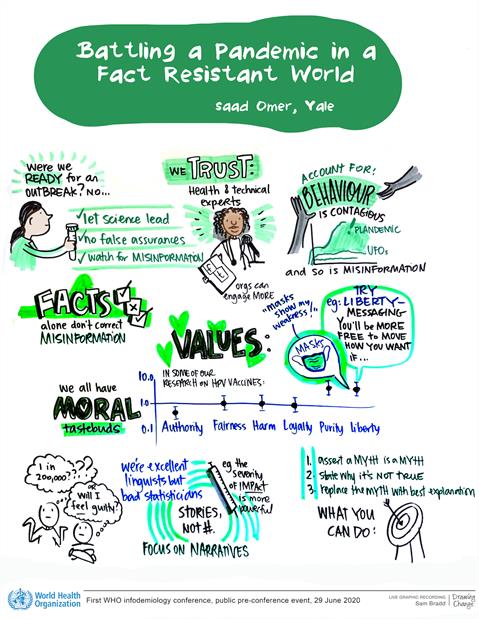 Battling a Pandemic in a
Fact Resistant World
Saad Omer, Yale
Were we
READY for an
OUTBREAK? NO...
let science lead
no false assurances
watch for MISINFORMATION
WE TRUST:
Health & technical
experts
orgs can
engage MORE
ACCOUNT FOR!
BEHAVIOUR
IS CONTAGIOUS
PLANDEMIC
UFOs
and so is MISINFORMATION
FACTS
alone don't correct
MISINFORMATION
VALUES:
"masks
show my
weakness!"
MASKS
TRY
eg: LIBERTY-
MESSAGING
YOU'll be MORE
FREE to MOVE
HOW YOU WANT
IF...
we all have
MORAL
tastebuds
IN SOME OF OUR
RESEARCH ON HPV VACCINES:
10.0
1.0
0.1
Authority Fairness Harm Loyalty Purity Liberty
1 in
200,000?
or
Will I
feel guilty?
we're excellent
linguists but
bad statisticians
eg the
severity
of IMPACT
is more
powerful
STORIES,
NOT #.
FOCUS ON NARRATIVES
1. assert a MYTH is a MYTH
2. state why it's NOT TRUE
3. replace the MYTH with best explanation
WHAT YOU
CAN DO:
World Health
Organization
First WHO infodemiology conference, public pre-conference event, 29 June 2020
LIVE GRAPHIC RECORDING
Sam Bradd
Drawing
Change